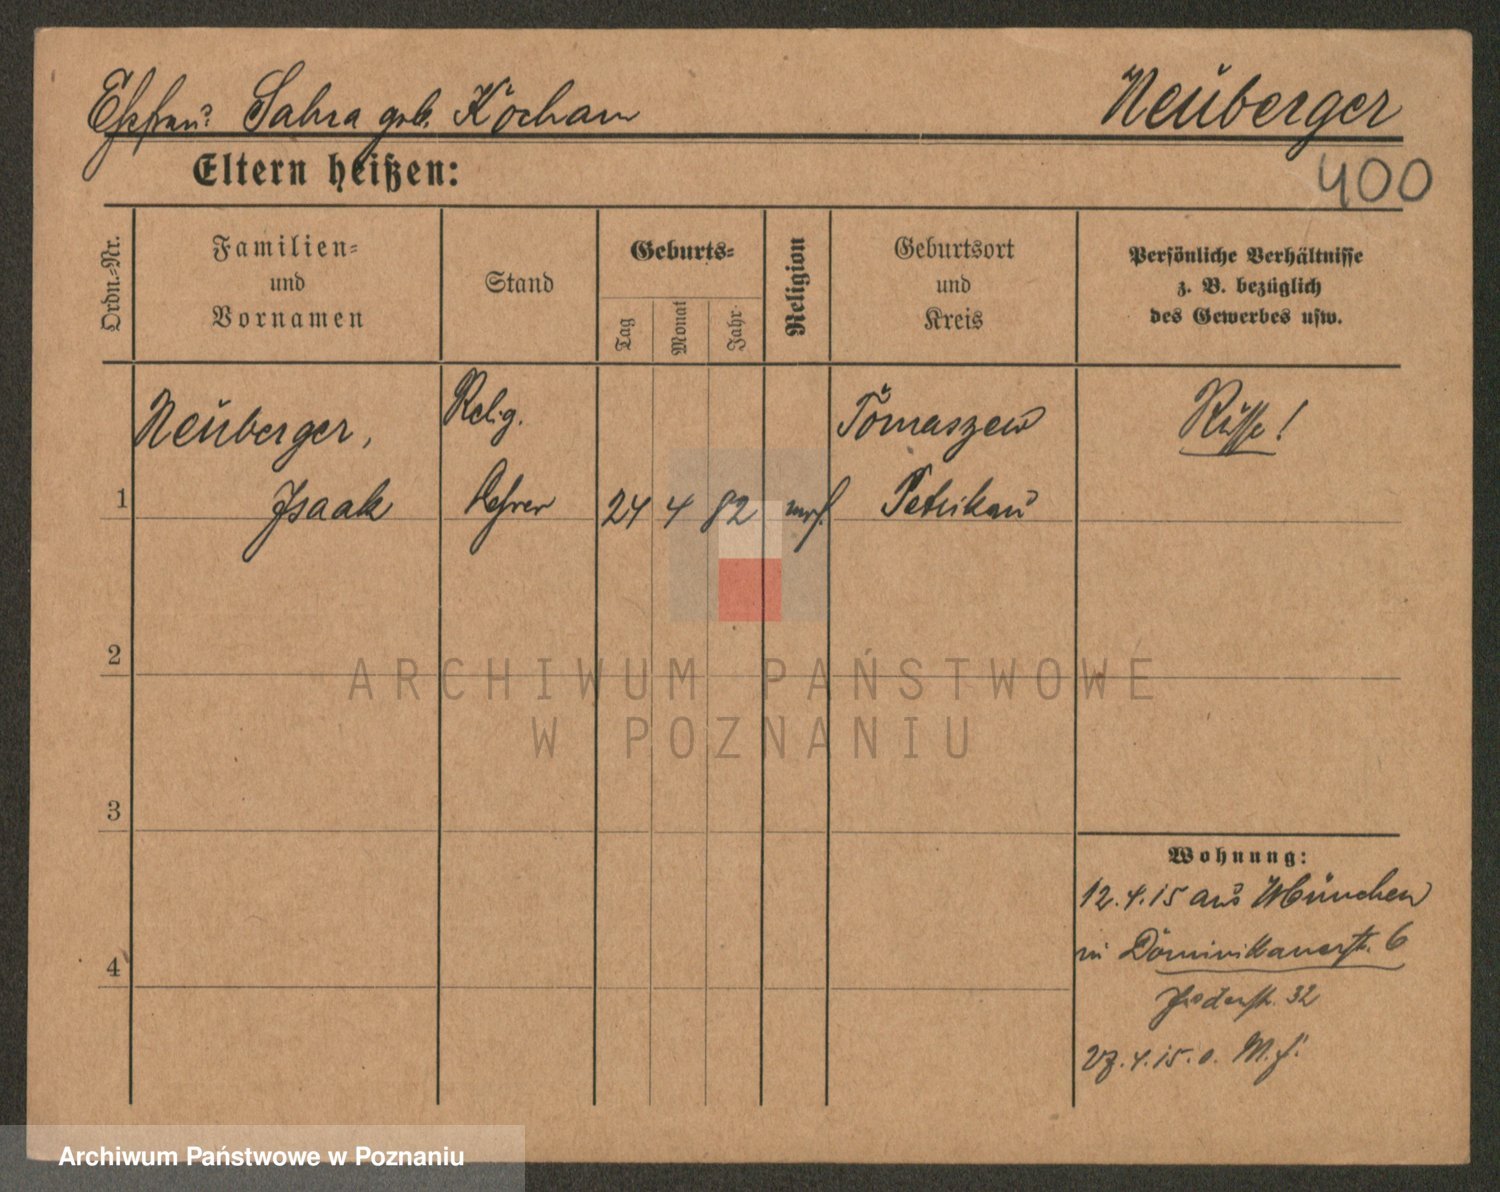 Ehefrau: Sahra geb. Kocham
Neuberger
Eltern heißen:
400
Ordn.=Nr.
Familien=
und
Vornamen
Stand
Geburts=
Tag
Monat
Jahr.
Religion
Geburtsort
und
Kreis
Persönliche Verhältnisse
z. B. bezüglich
des Gewerbes usw.
Neuberger,
Isaak
Relig.
Lehrer
24 4 82
Tomaszew
Petrikau
Russe!
1
2
3
4
ARCHIWUM PAŃSTWOWE
W POZNANIU
Wohnung:
12.4.15 aus München
in Dominikanerstr. 6
32
4.15.
Archiwum Państwowe w Poznaniu